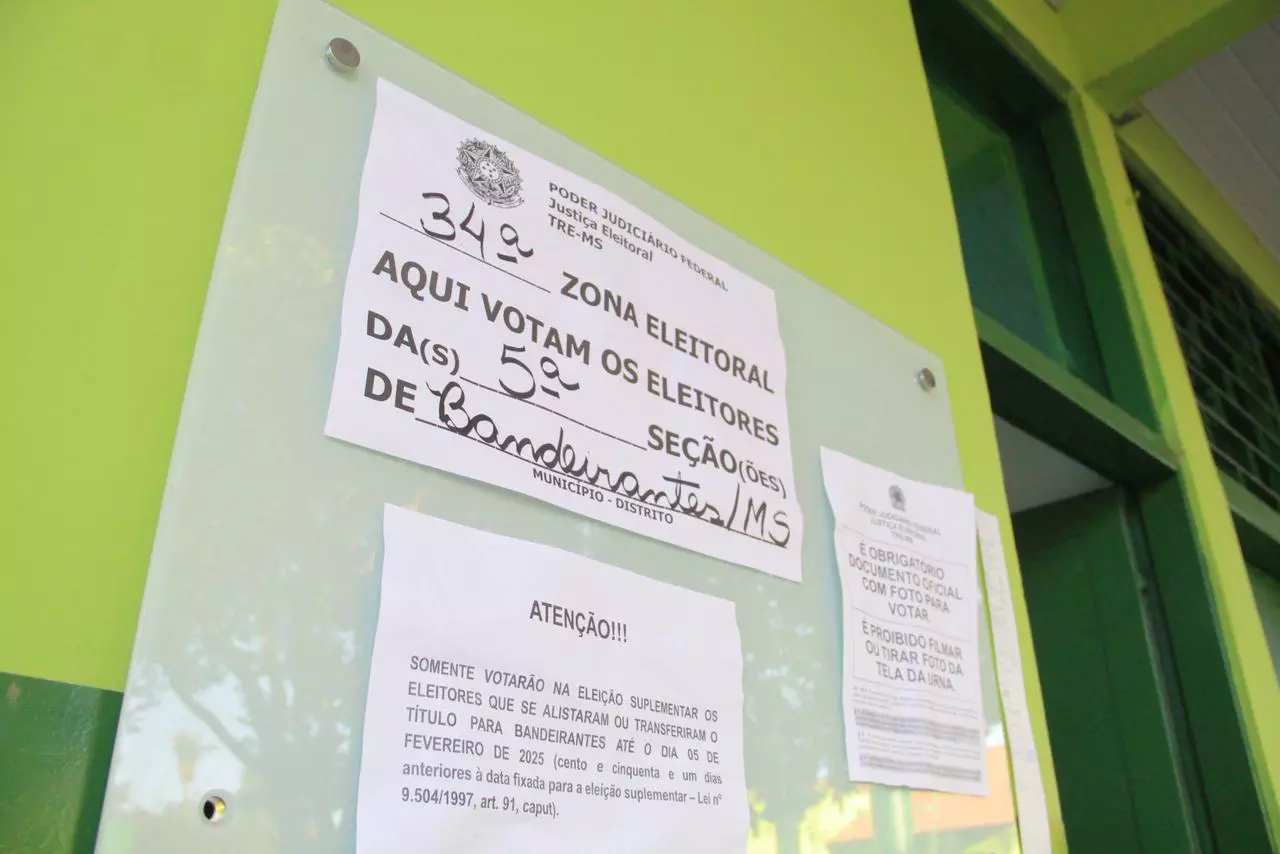 PODER JUDICIÁRIO FEDERAL
Justiça Eleitoral
TRE-MS
34ª ZONA ELEITORAL
AQUI VOTAM OS ELEITORES
DA(S) 5ª SEÇÃO(ÕES)
DE Bandeirantes/MS
MUNICÍPIO - DISTRITO
ATENÇÃO!!!
SOMENTE VOTARÃO NA ELEIÇÃO SUPLEMENTAR OS
ELEITORES QUE SE ALISTARAM OU TRANSFERIRAM O
TÍTULO PARA BANDEIRANTES ATÉ O DIA 05 DE
FEVEREIRO DE 2025 (cento e cinquenta e um dias
anteriores à data fixada para a eleição suplementar – Lei nº
9.504/1997, art. 91, caput).
PODER JUDICIÁRIO FEDERAL
JUSTIÇA ELEITORAL
TRE-MS
É OBRIGATÓRIO
DOCUMENTO OFICIAL
COM FOTO PARA
VOTAR.
É PROIBIDO FILMAR
OU TIRAR FOTO DA
TELA DA URNA.